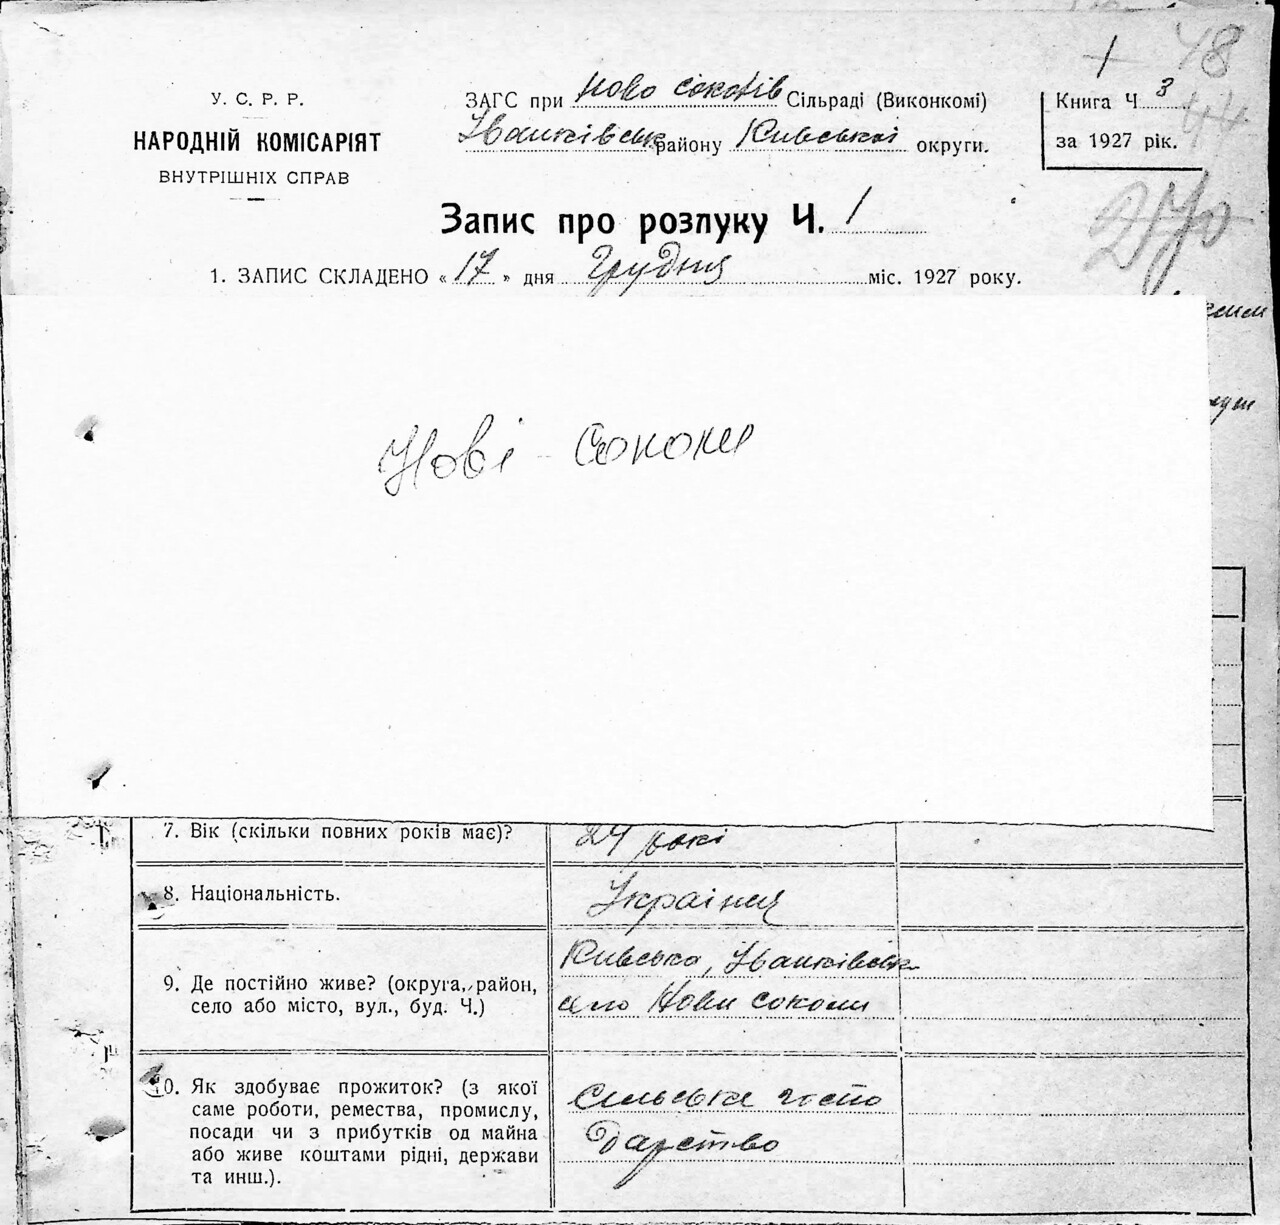 У. С. Р. Р.
НАРОДНІЙ КОМІСАРІЯТ
ВНУТРІШНІХ СПРАВ
ЗАГС при Ново соколів Сільраді (Виконкомі)
Іванківськ району Київської округи.
Книга Ч 3
за 1927 рік.
1
48
44
270
Запис про розлуку Ч. 1
1. ЗАПИС СКЛАДЕНО «17» дня Грудня міс. 1927 року.
Нові Соколи
7. Вік (скільки повних років має)? 24 рокі
8. Національність. Україниця
9. Де постійно живе? (округа, район, Київсько, Іванківськ
село або місто, вул., буд. Ч.) село Нови соколи
10. Як здобуває прожиток? (з якої Сильське госпо
саме роботи, ремества, промислу,
посади чи з прибутків од майна дарство
або живе коштами рідні, держави
та инш.).